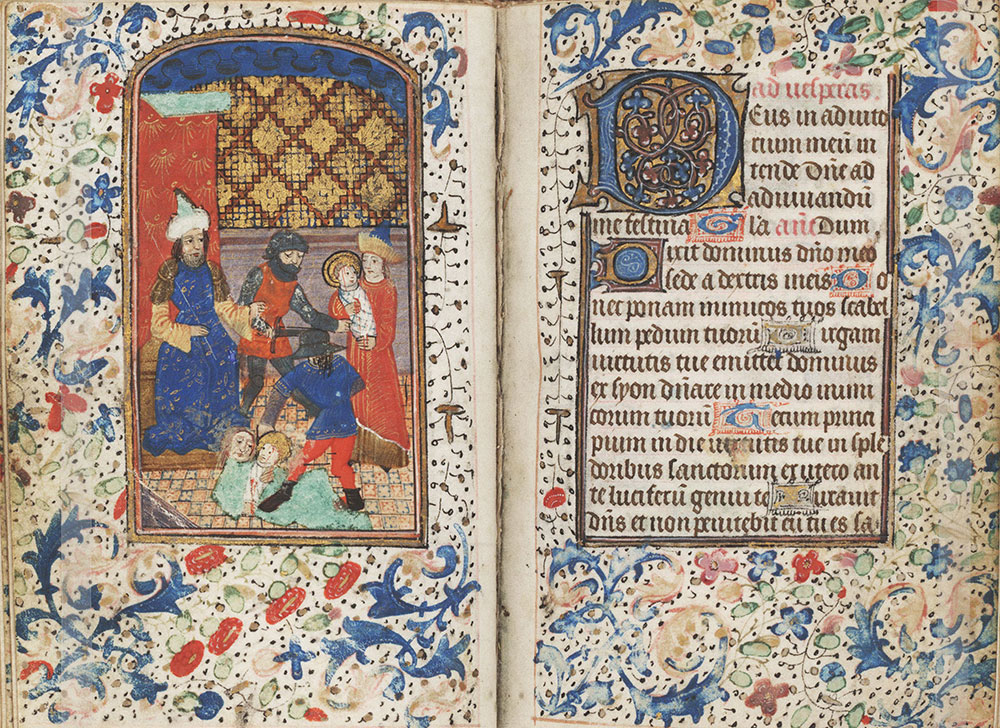 ad uesperas.
Deus in adiuto
rium meū in
tende Dñe ad
adiuuandū
me festina Gl'a añe Dum
Dixit dominus dño meo
sede a dextris meis Do
nec ponam inimicos tuos scabel
lum pedum tuorū Uirgam
uirtutis tue emittet dominus
ex syon dñare in medio inimi
corum tuorū Tecum princi
pium in die uirtutis tue in sple
doribus sanctorum ex utero an
te luciferū genui te Iurauit
dñs et non penitebit eū tu es sa